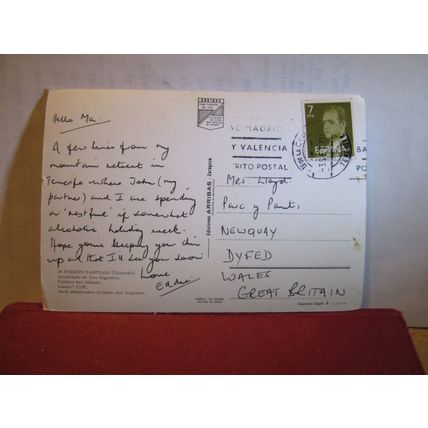 Hello Ma.
A few lines from my
mountain retreat in
Tenerife where John (my
partner) and I are spending
a 'restful' if somewhat
alcoholic holiday week.
Hope you're keeping your chin
up and that I'll see you soon
Love
Eddie
26 PUERTO SANTIAGO (Tenerife)
Acantilado de Los Gigantes.
Falaise des Géants.
Giants' Cliff.
ARRIBAS
Ediciones ARRIBAS - Zaragoza
AD MADRID
Y VALENCIA
RITO POSTAL
7
PTA
ESPAÑA
BA
PO
Mrs Lloyd
Parc y Pant,
NEWQUAY
DYFED
WALES
GREAT BRITAIN